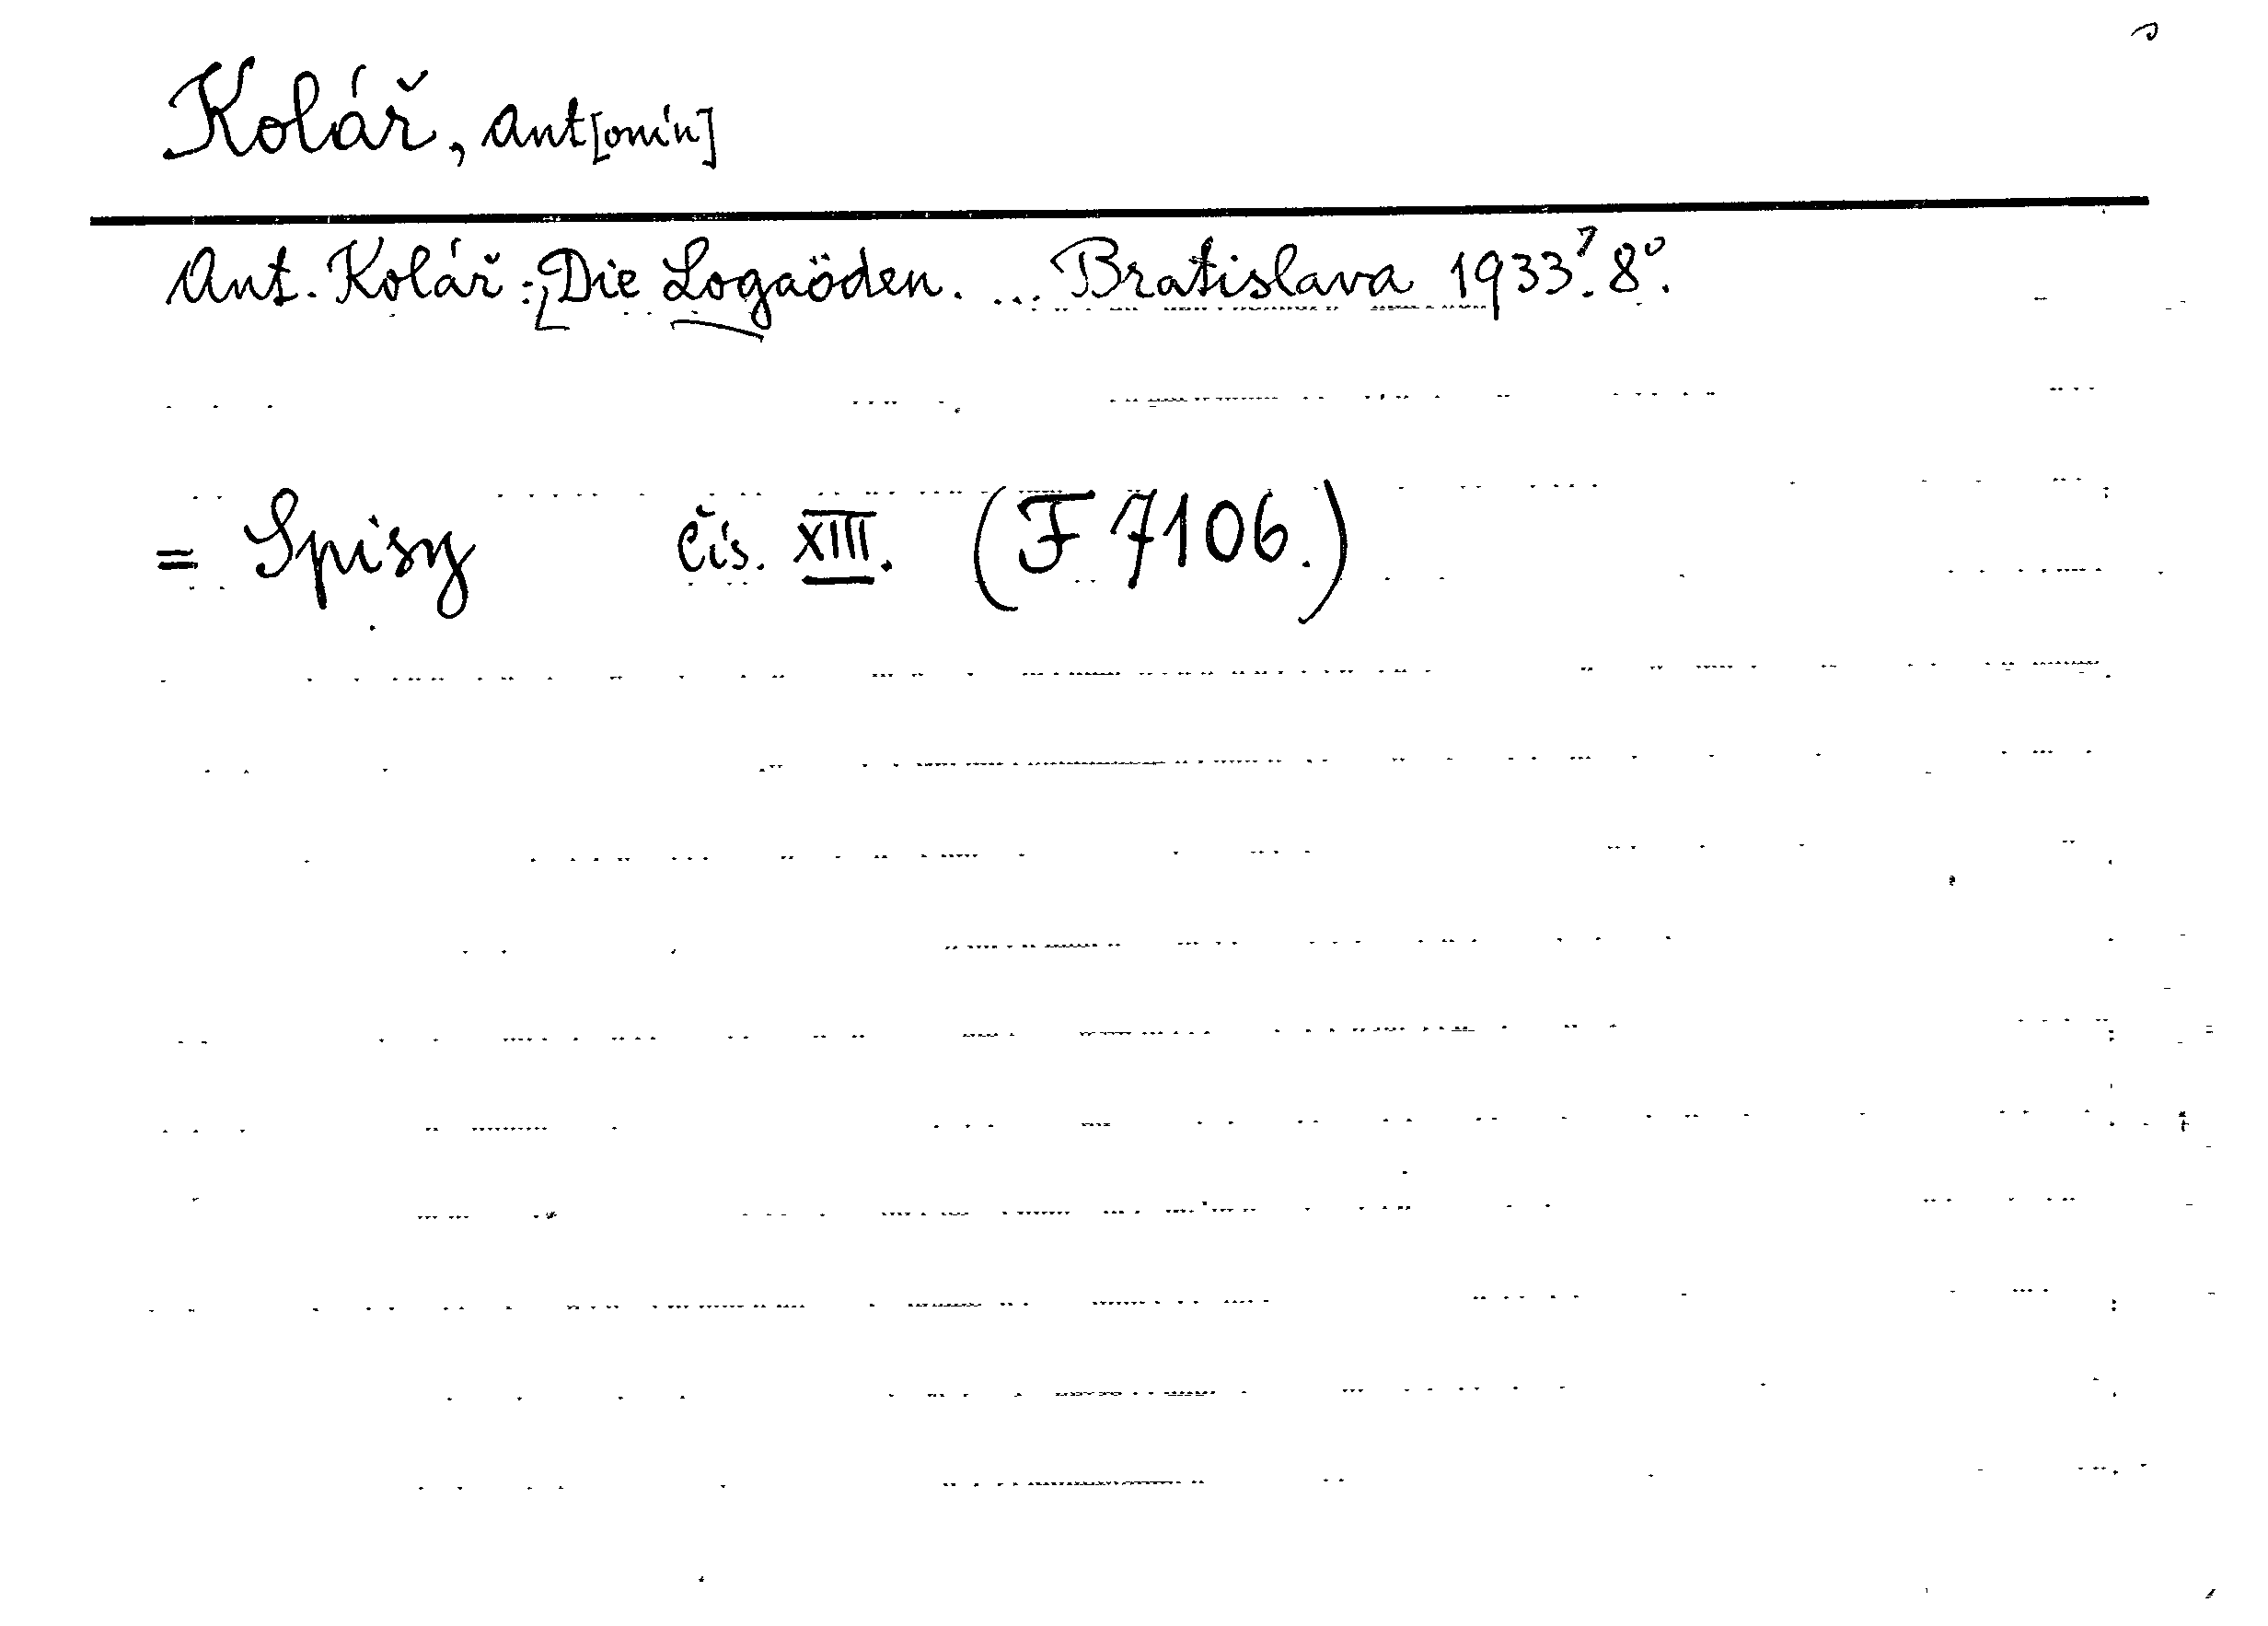 Kolář, Ant[onín]
Ant. Kolář: Die Logaöden. ... Bratislava 1933?. 8°.
= Spisy čís. XIII. (F 7106.)